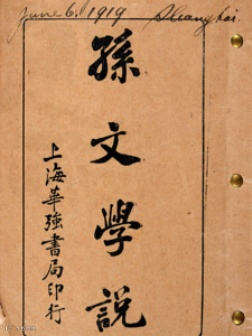 June 6, 1919 Shanghai
孫文學說
上海華強書局印行